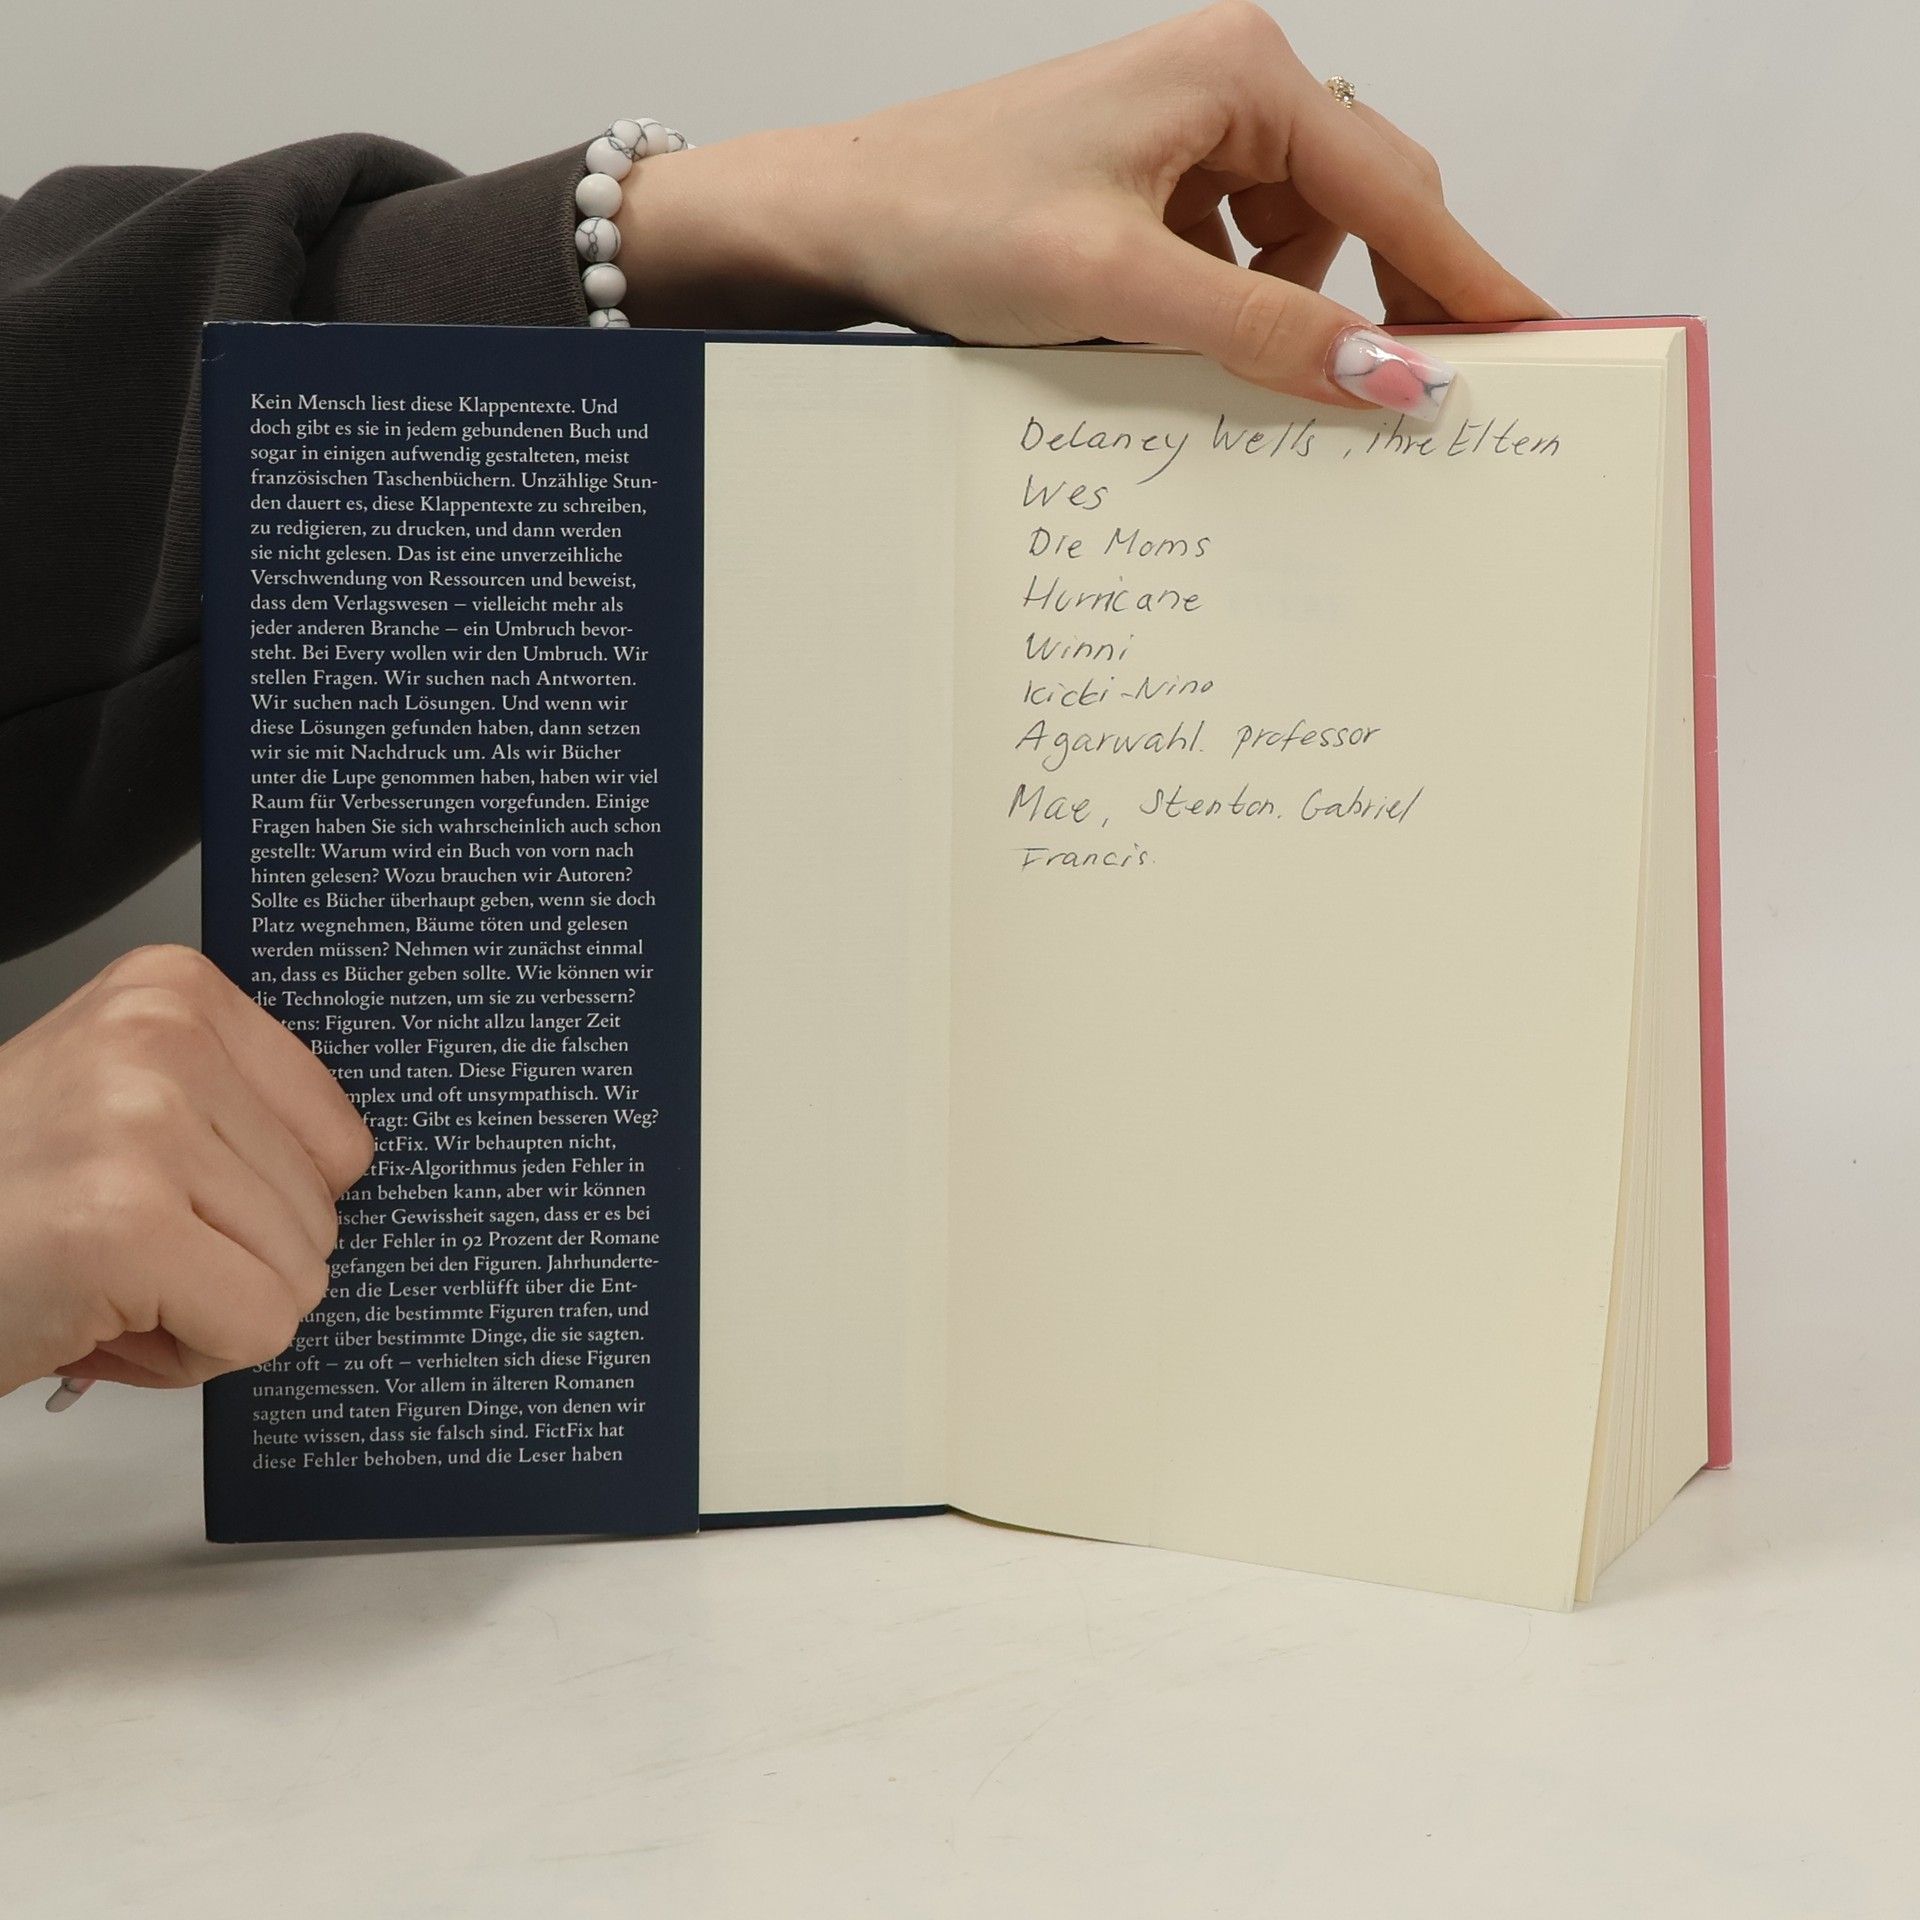 Kein Mensch liest diese Klappentexte. Und
doch gibt es sie in jedem gebundenen Buch und
sogar in einigen aufwendig gestalteten, meist
französischen Taschenbüchern. Unzählige Stun-
den dauert es, diese Klappentexte zu schreiben,
zu redigieren, zu drucken, und dann werden
sie nicht gelesen. Das ist eine unverzeihliche
Verschwendung von Ressourcen und beweist,
dass dem Verlagswesen – vielleicht mehr als
jeder anderen Branche – ein Umbruch bevor-
steht. Bei Every wollen wir den Umbruch. Wir
stellen Fragen. Wir suchen nach Antworten.
Wir suchen nach Lösungen. Und wenn wir
diese Lösungen gefunden haben, dann setzen
wir sie mit Nachdruck um. Als wir Bücher
unter die Lupe genommen haben, haben wir viel
Raum für Verbesserungen vorgefunden. Einige
Fragen haben Sie sich wahrscheinlich auch schon
gestellt: Warum wird ein Buch von vorn nach
hinten gelesen? Wozu brauchen wir Autoren?
Sollte es Bücher überhaupt geben, wenn sie doch
Platz wegnehmen, Bäume töten und gelesen
werden müssen? Nehmen wir zunächst einmal
an, dass es Bücher geben sollte. Wie können wir
die Technologie nutzen, um sie zu verbessern?
tens: Figuren. Vor nicht allzu langer Zeit
Bücher voller Figuren, die die falschen
ten und taten. Diese Figuren waren
mplex und oft unsympathisch. Wir
fragt: Gibt es keinen besseren Weg?
ictFix. Wir behaupten nicht,
tFix-Algorithmus jeden Fehler in
an beheben kann, aber wir können
ischer Gewissheit sagen, dass er es bei
t der Fehler in 92 Prozent der Romane
gefangen bei den Figuren. Jahrhunderte-
ren die Leser verblüfft über die Ent-
ungen, die bestimmte Figuren trafen, und
rgert über bestimmte Dinge, die sie sagten.
Sehr oft – zu oft – verhielten sich diese Figuren
unangemessen. Vor allem in älteren Romanen
sagten und taten Figuren Dinge, von denen wir
heute wissen, dass sie falsch sind. FictFix hat
diese Fehler behoben, und die Leser haben
Delaney Wells, ihre Eltern
Wes
Die Moms
Hurricane
Winni
Kicki-Nino
Agarwahl. professor
Mae, Stenton. Gabriel
Francis.